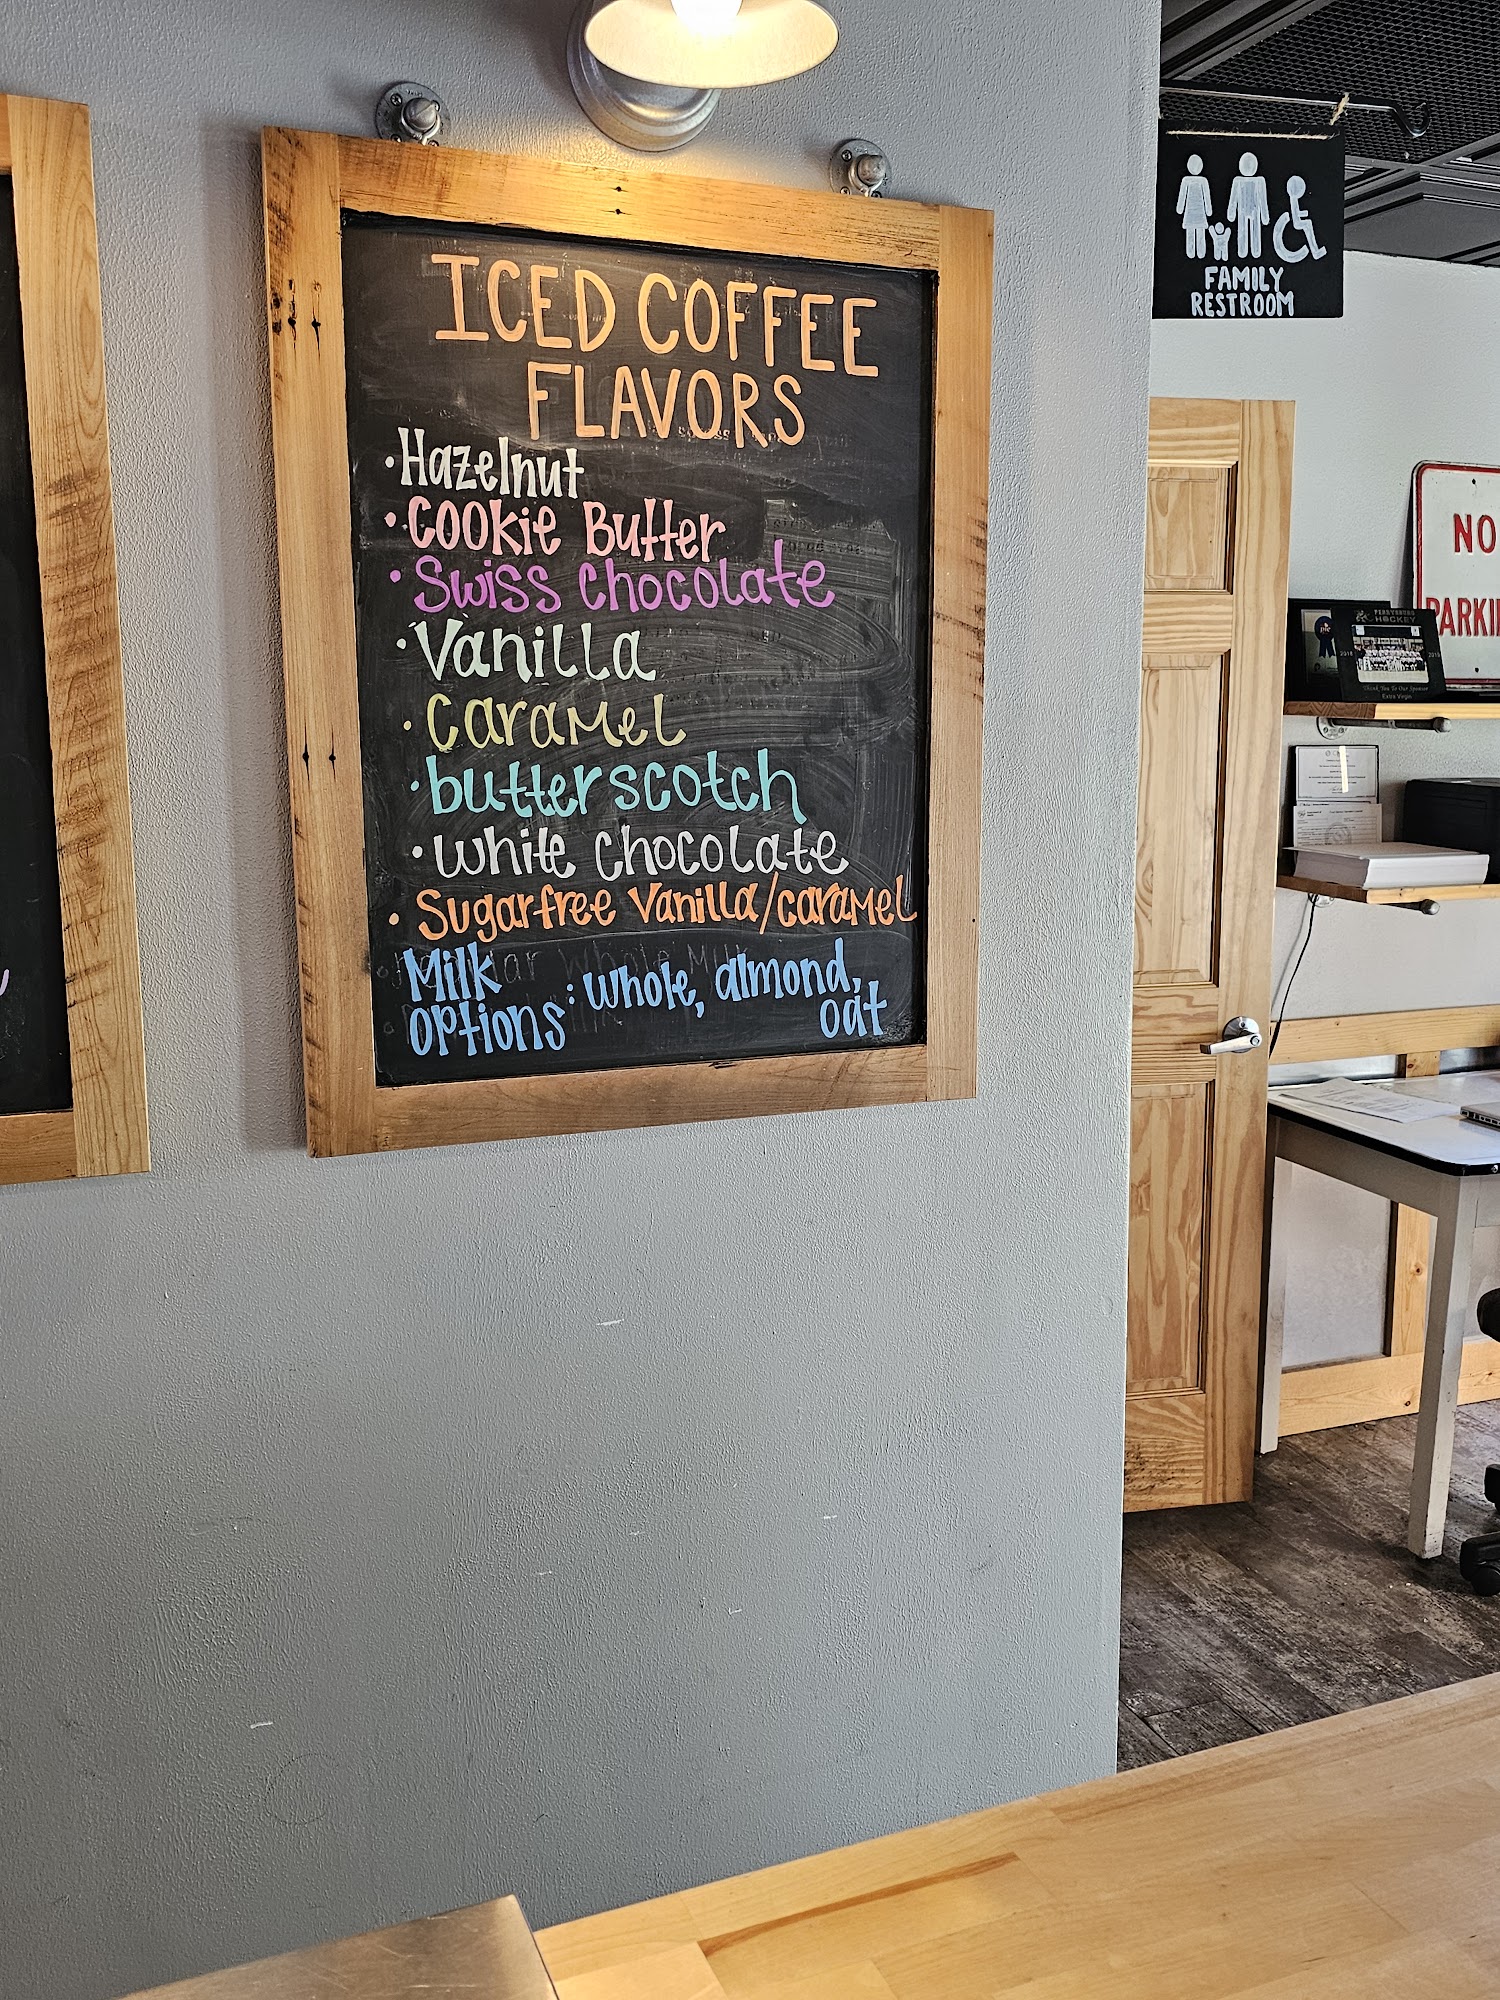 ICED COFFEE
FLAVORS
• Hazelnut
• Cookie Butter
• Swiss Chocolate
• Vanilla
• Caramel
• butterscotch
• White Chocolate
• Sugarfree Vanilla/caramel
Milk
options : Whole, almond,
oat
FAMILY
RESTROOM
NO
PARKI
PERRYSBURG
HOCKEY
2018 2019
Thank You To Our Sponsor
Extra Virgin